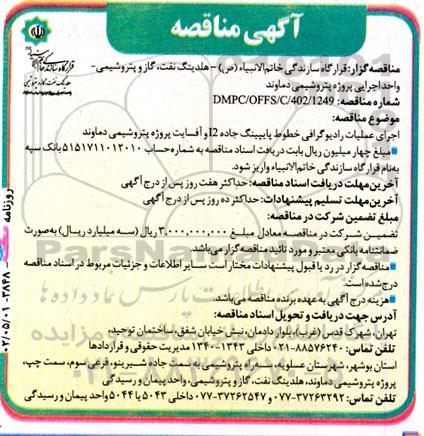 آگهی مناقصه
مناقصه‌گزار: قرارگاه سازندگی خاتم‌الانبیاء (ص) – هلدینگ نفت، گاز و پتروشیمی-
واحد اجرایی پروژه پتروشیمی دماوند
شماره مناقصه: DMPC/OFFS/C/402/1249
موضوع مناقصه:
اجرای عملیات رادیوگرافی خطوط پایپینگ جاده I2 و آفسایت پروژه پتروشیمی دماوند
■ مبلغ چهار میلیون ریال بابت دریافت اسناد مناقصه به شماره حساب ۵۱۵۱۷۱۱۰۱۲۰۱۰ بانک سپه
به‌نام قرارگاه سازندگی خاتم‌الانبیاء واریز شود.
آخرین مهلت دریافت اسناد مناقصه: حداکثر هفت روز پس از درج آگهی
آخرین مهلت تسلیم پیشنهادات: حداکثر ده روز پس از درج آگهی
مبلغ تضمین شرکت در مناقصه:
تضمین شرکت در مناقصه معادل مبلغ ۳,۰۰۰,۰۰۰,۰۰۰ ریال (سه میلیارد ریال) به‌صورت
ضمانتنامه بانکی معتبر و مورد تائید مناقصه گزار می‌باشد.
■ مناقصه‌گزار در رد یا قبول پیشنهادات مختار است سایر اطلاعات و جزئیات مربوط در اسناد مناقصه
درج شده است.
■ هزینه درج آگهی به عهده برنده مناقصه می‌باشد.
آدرس جهت دریافت و تحویل اسناد مناقصه:
تهران، شهرک قدس (غرب)، بلوار دادمان، نبش خیابان شفق، ساختمان توحید،
تلفن تماس: ۸۸۵۷۶۲۴۰-۰۲۱ داخلی ۱۳۴۳-۱۳۴۰ مدیریت حقوقی و قراردادها
استان بوشهر، شهرستان عسلویه، سه‌راه پتروشیمی به سمت جاده شیرینو، فرعی سوم، سمت چپ،
پروژه پتروشیمی دماوند، هلدینگ نفت، گاز و پتروشیمی، واحد پیمان و رسیدگی
تلفن تماس: ۳۷۲۶۳۲۹۲-۰۷۷ و ۳۷۲۶۲۵۴۷-۰۷۷ داخلی ۵۰۴۳ یا ۵۰۴۴ واحد پیمان و رسیدگی
روزنامه
۰۳۸۴۸
۰۲/۰۵/۰۱
ParsNamadData